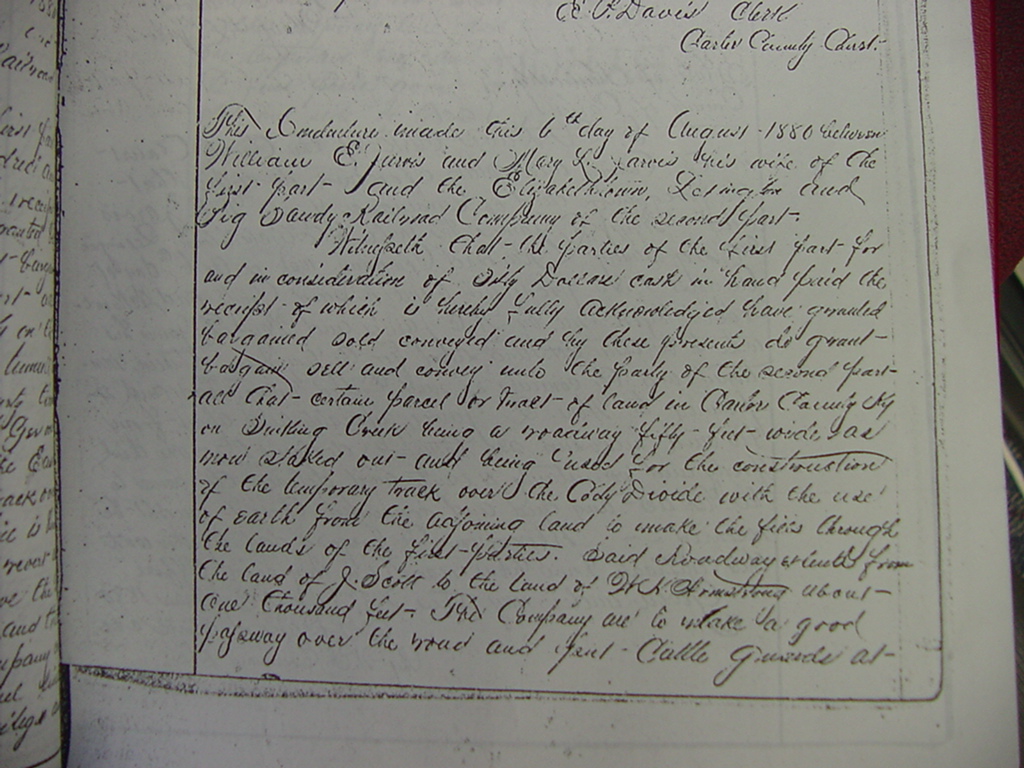 E. P. Davis Clerk
Carter County Court.
This Indenture made this 6th day of August 1880 between
William E. Jarvis and Mary L. Jarvis his wife of the
first part and the Elizabethtown, Lexington and
Big Sandy Railroad Company of the second part.
Witnesseth that the parties of the first part for
and in consideration of Dollars cash in hand paid the
receipt of which is hereby fully acknowledged have granted
bargained sold conveyed and by these presents do grant
bargain sell and convey unto the party of the second part
all that certain parcel or tract of land in Carter County Ky
on Stinking Creek being a roadway fifty feet wide as
now staked out and being used for the construction
of the temporary track over the Cody Divide with the use
of earth from the adjoining land to make the fills through
the lands of the first parties. Said Roadway extends from
the land of J. Scott to the land of W. K. Armstrong about
one thousand feet. The Company are to make a good
passway over the road and put Cattle Guards at